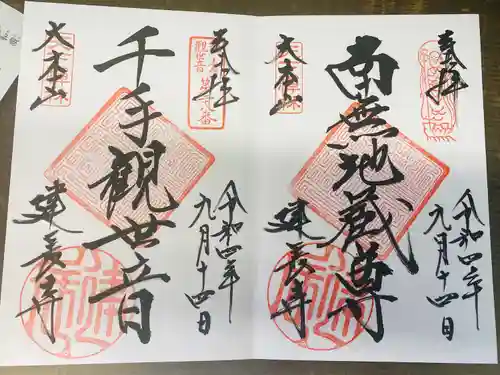 奉拝
令和四年
九月十四日
南無地蔵尊
大本山
建長寺
奉拝
観世音
第二十八番
令和四年
九月十四日
千手観世音
大本山
建長寺